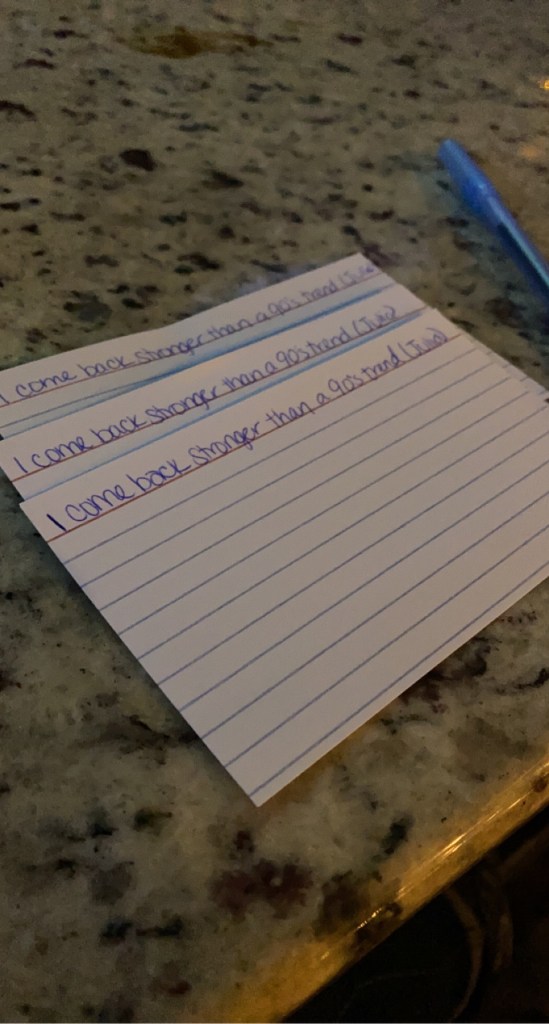 I come back stronger than a 90's trend (Julia)
I come back stronger than a 90's trend (Julia)
I come back stronger than a 90's trend (Julia)